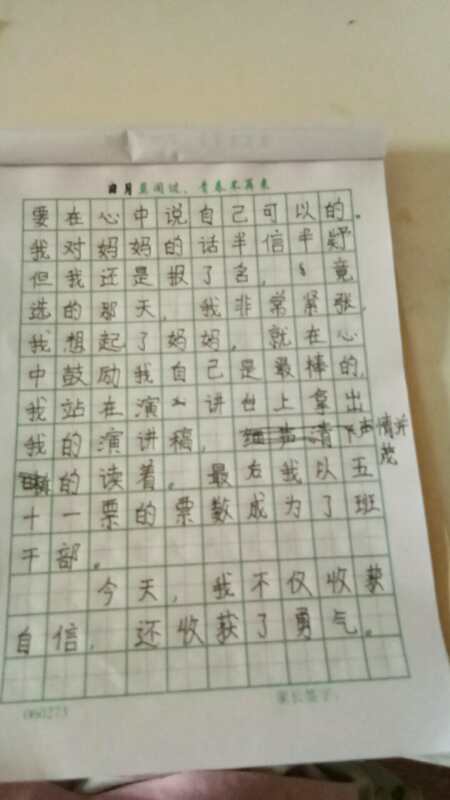 日月莫闲过，青春不再来
要在心中说自己可以的。
我对妈妈的话半信半疑
但我还是报了名，竟
选的那天，我非常紧张，
我想起了妈妈，就在心
中鼓励我自己是最棒的，
我站在演讲台上拿出
我的演讲稿，声情并
茂
的读着。最后我以五
十一票的票数成为了班
干部。
今天，我不仅收获
自信，还收获了勇气。
060273
家长签字：